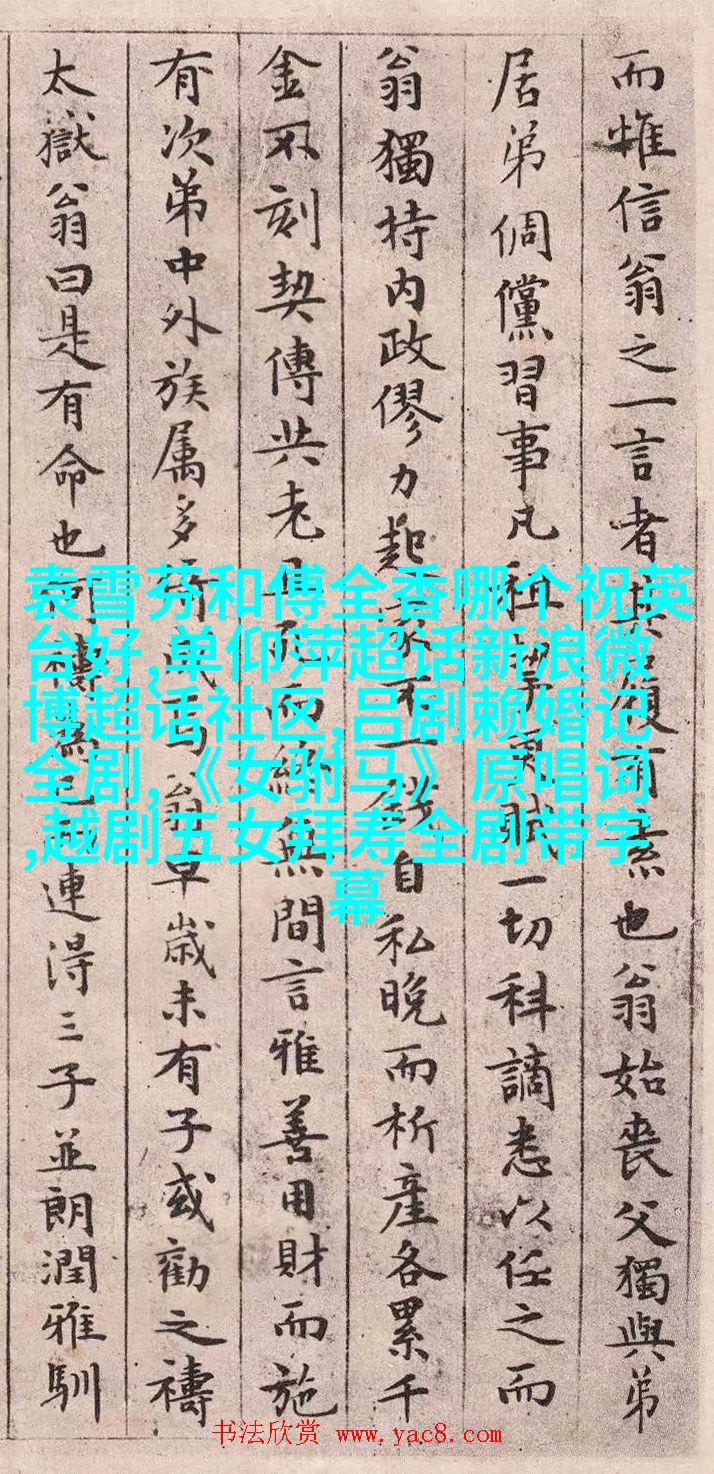 而惟信翁之一言者其履可素也翁始喪父獨與弟
居弟倜儻習事凡租挈更賦一切科謫悉以任之而
翁獨持内政僇力起家不一錢自私晚而析產各累千
金不刻契傳共老 而 無間言雅善用財而施
有次弟中外族属多 翁早歲未有子或勸之禱
太嶽翁曰是有命也 禱為已而連淂三子並朗潤雅馴
袁雪芬和傅全香哪个祝英
台好,单仰萍超话新浪微
博超话社区,吕剧赖婚记
全剧,《女驸马》原唱词
,越剧五女拜寿全剧带字
幕
书法欣赏 www.yac8.com